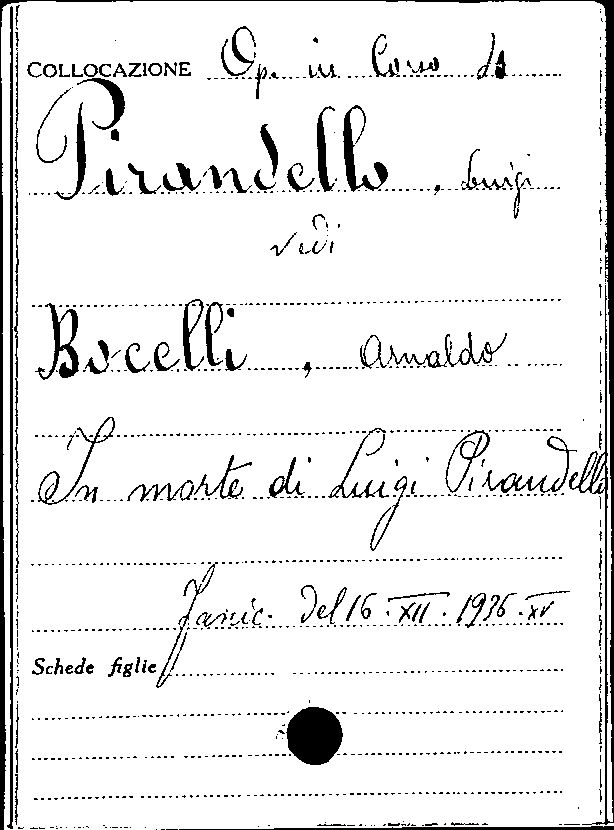 COLLOCAZIONE Op. in Corso da
Pirandello, Luigi
vedi
Bocelli, Arnaldo
In morte di Luigi Pirandello
fasic. del 16.XII.1936.XV
Schede figlie